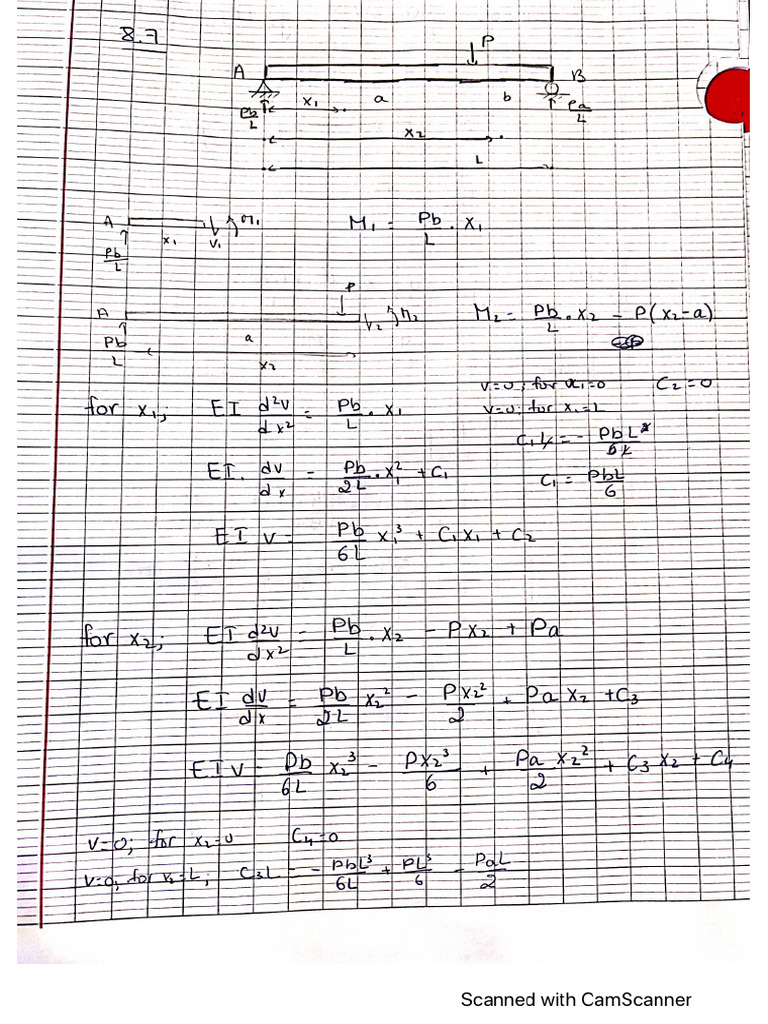 8.7
P
A B
Pb/L x₁ a b Pa/L
x₂
L
A x₁ V₁ M₁ M₁ = Pb/L · x₁
Pb/L
P
A V₂ M₂ M₂ = Pb/L · x₂ - P(x₂-a)
Pb/L a
x₂
v=0; for x₁=0 C₂=0
for x₁; EI d²v/dx² = Pb/L · x₁ v=0; for x₁=L
C₁L = - PbL²/6L
EI. dv/dx = Pb/2L · x₁² + C₁ C₁ = PbL/6
EI v = Pb/6L x₁³ + C₁x₁ + C₂
for x₂; EI d²v/dx² = Pb/L · x₂ - Px₂ + Pa
EI dv/dx = Pb/2L x₂² - Px₂²/2 + Pa x₂ + C₃
EI v = Pb/6L x₂³ - Px₂³/6 + Pa x₂²/2 + C₃x₂ + C₄
v=0; for x₂=0 C₄=0
v=0, for x₂=L; C₃L = - PbL³/6L + PL³/6 - PaL/2
Scanned with CamScanner